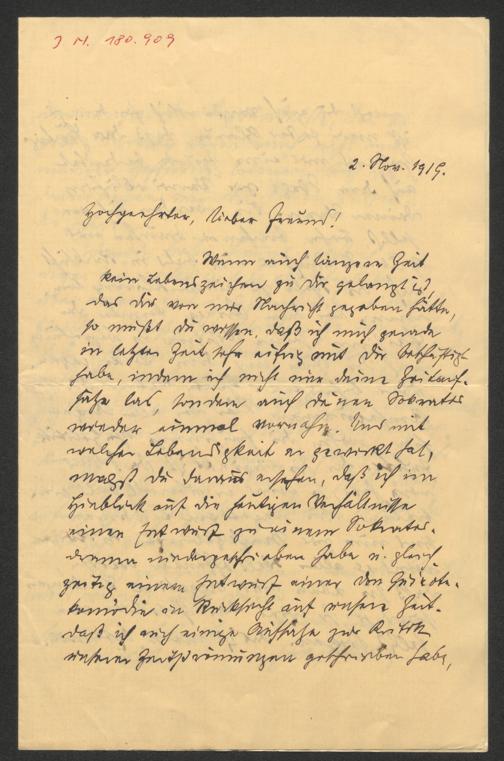 J N. 180.909
2. Nov. 1919.
Hochgeehrter, lieber Freund!
Wenn auch längere Zeit
kein Lebenszeichen zu Dir gelangt ist,
das Dir von mir Nachricht gegeben hätte,
so mußt Du wissen, daß ich mich gerade
in letzter Zeit sehr eifrig mit Dir beschäftigt
habe, indem ich nicht nur deine Zeitauf-
sätze las, sondern auch deinen Sokrates
wieder einmal vornahm. Und mit
welcher Lebendigkeit er gewirkt hat,
magst Du daraus ersehen, daß ich im
Hinblick auf die heutigen Verhältnisse
einen Entwurf zu einem Sokrates-
drama niedergeschrieben habe u. gleich-
zeitig einen Entwurf einer Don Quixote-
komödie in Rücksicht auf unsere Zeit.
daß ich auch einige Aufsätze zur Kritik
unserer Zeitströmungen geschrieben habe,